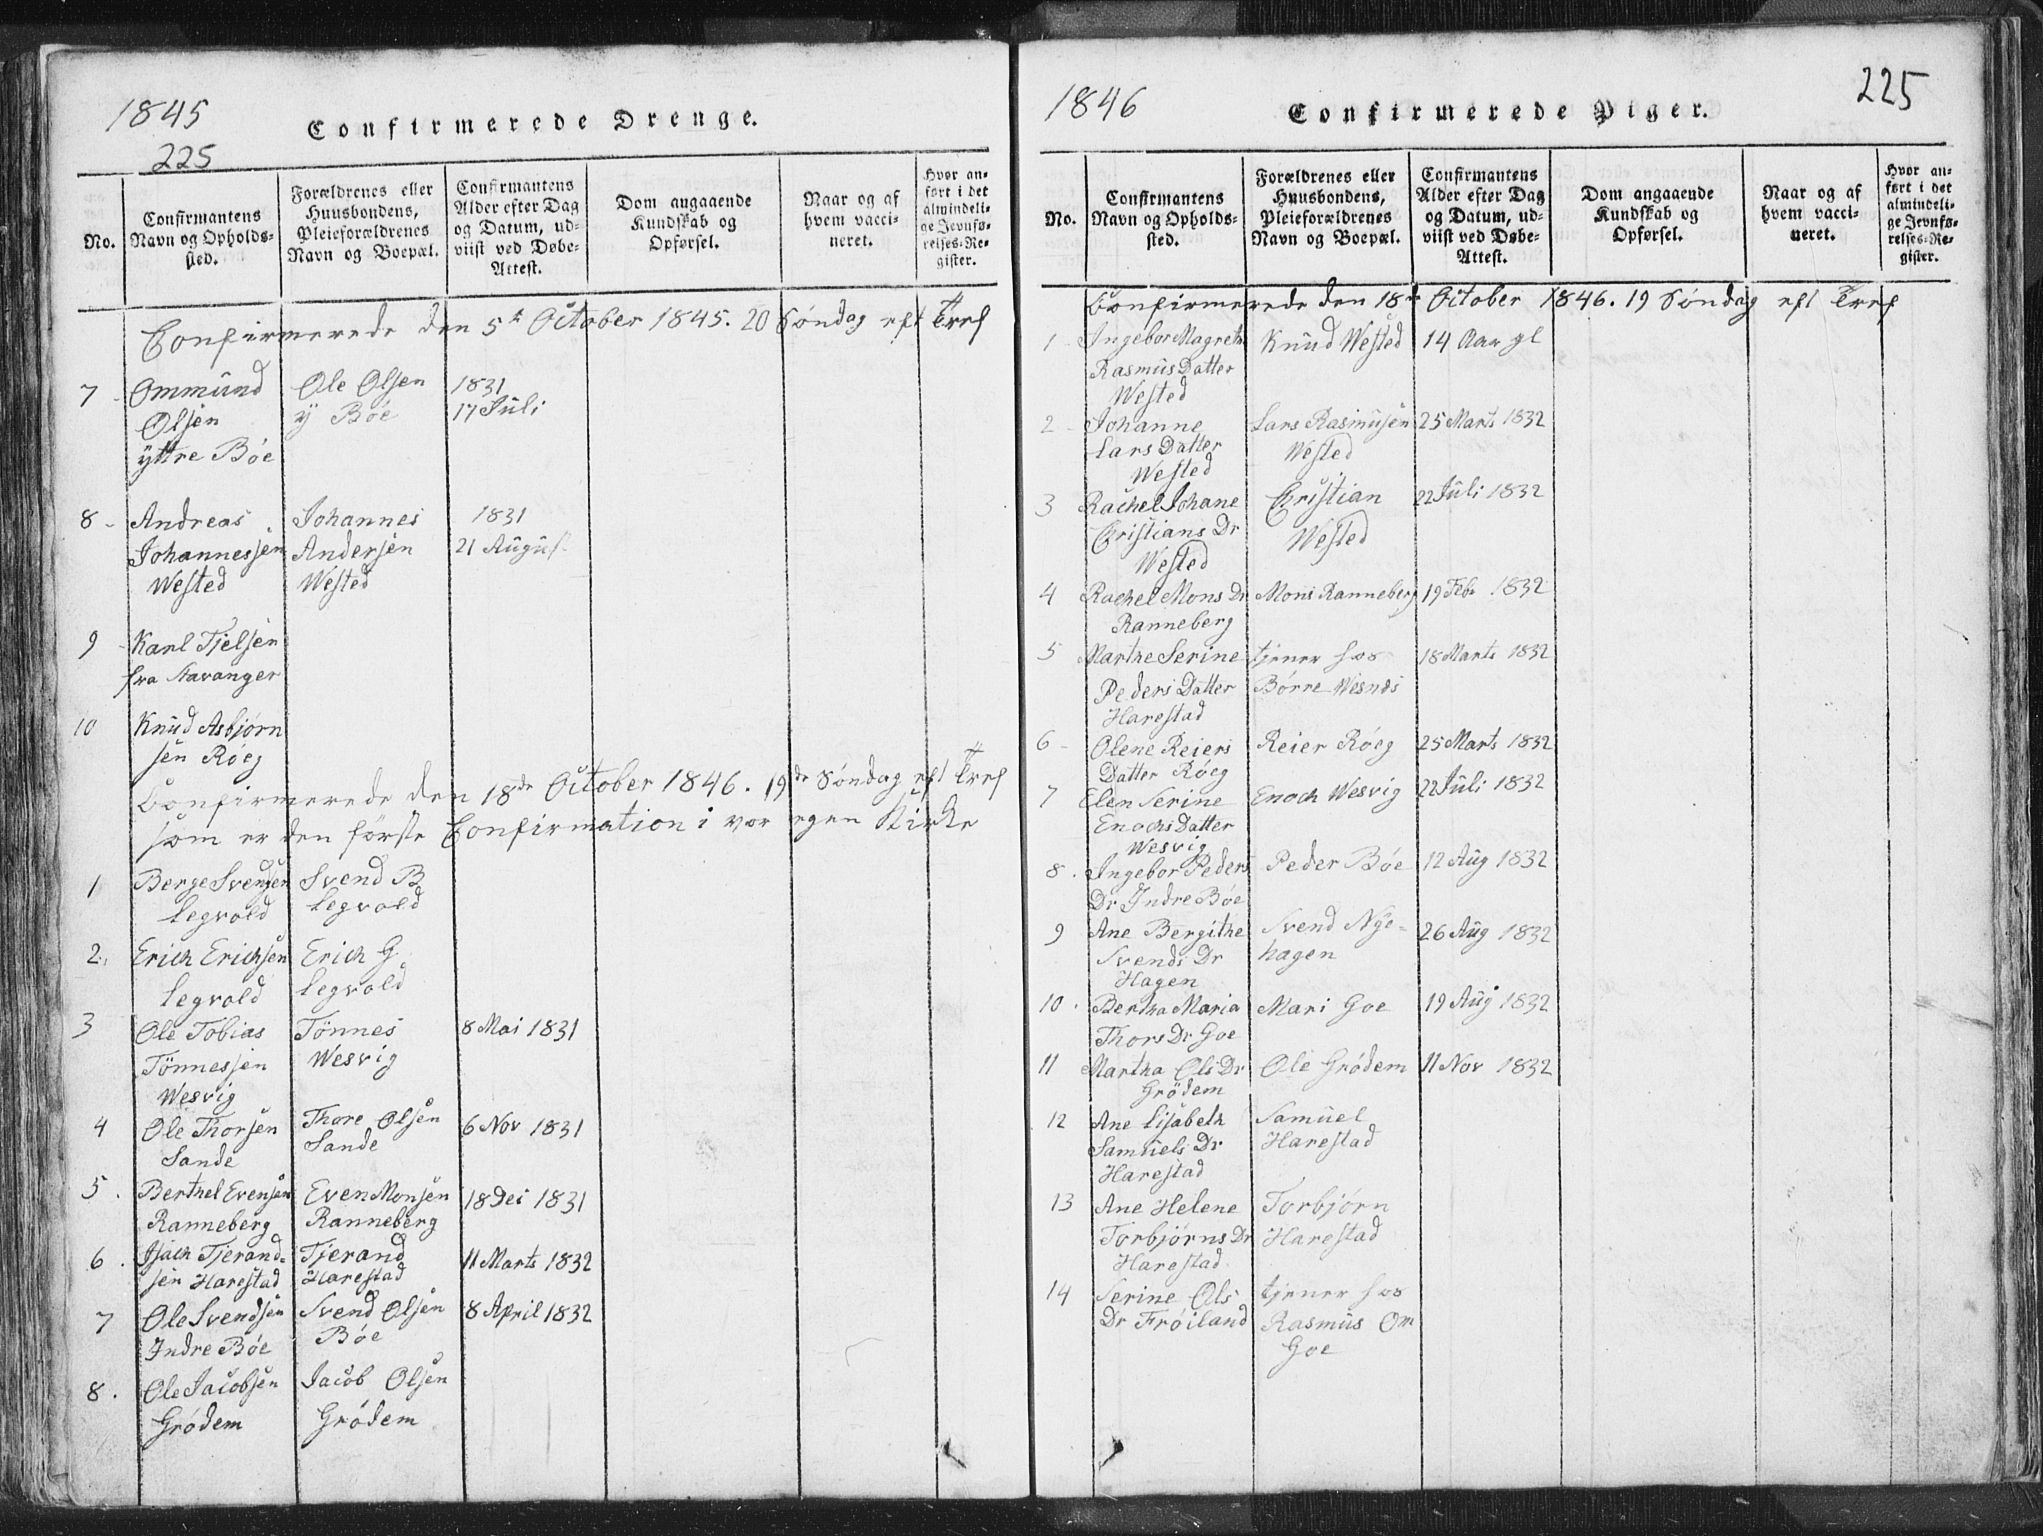 1845
225
Confirmerede Drenge.
No.
Confirmantens
Navn og Opholds-
sted.
Forældrenes eller
Huusbondens,
Pleieforældrenes
Navn og Boepæl.
Confirmantens
Alder efter Dag
og Datum, ud-
viist ved Døbe-
Attest.
Dom angaaende
Kundskab og
Opførsel.
Naar og af
hvem vacci-
neret.
Hvor an-
ført i det
almindeli-
ge Jevnfø-
relses-Re-
gister.
Confirmerede den 5te October 1845. 20 Søndag eft Tref
7 Ommund Ole Olsen 1831
Olsen y Bøe 17 Juli
yttre Bøe
8 Andreas Johannes 1831
Johannessen Andersen 21 August
Wested Wested
9 Karl Tjelsen
fra Stavanger
10 Knud Asbjørn
sen Røeg
Confirmerede den 18de October 1846. 19de Søndag eft Tref
som er den første Confirmation i vor egen Kirke
1 Berge Svendsen Svend B
Legvold Legvold
2 Erich Erichsen Erich G
Legvold Legvold
3 Ole Tobias Tönnes 8 Mai 1831
Tönnessen Wesvig
Wesvig
4 Ole Thorsen Thore Olsen 6 Nov 1831
Sande Sande
5. Berthel Evensen Even Monsen 18 Dec 1831
Ranneberg Ranneberg
6. Isach Tjerand- Tjerand 11 Marts 1832
sen Harestad Harestad
7 Ole Svendsen Svend Olsen 8 April 1832
Indre Bøe Bøe
8. Ole Jacobsen Jacob Olsen
Grödem Grödem
1846
225
Confirmerede Piger.
No.
Confirmantens
Navn og Opholds-
sted.
Forældrenes eller
Huusbondens,
Pleieforældrenes
Navn og Boepæl.
Confirmantens
Alder efter Dag
og Datum, ud-
viist ved Døbe-
Attest.
Dom angaaende
Kundskab og
Opførsel.
Naar og af
hvem vacci-
neret.
Hvor an-
ført i det
almindeli-
ge Jevnfø-
relses-Re-
gister.
Confirmerede den 18de October 1846. 19 Søndag eft Tref
1 Ingebor Magrete Knud Wested 14 Aar gl
Rasmus Datter
Wested
2 Johanne Lars Rasmusen 25 Marts 1832
Lars Datter Wested
Wested
3 Rachel Johane Cristian 22 Juli 1832
Cristians Dr Wested
Wested
4 Rachel Mons Dr Mons Ranneberg 19 Feb 1832
Ranneberg
5 Marthe Serine tjener hos 18 Marts 1832
Peders Datter Börre Wesnes
Harestad
6 Olene Reiers Reier Röeg 25 Marts 1832
Datter Röeg
7 Elen Serine Enoch Wesvig 22 Juli 1832
Enochs Datter
Wesvig
8. Ingebor Peders Peder Bøe 12 Aug 1832
Dr Indre Bøe
9 Ane Bergithe Svend Nye- 26 Aug 1832
Svends Dr hagen
Hagen
10. Bertha Maria Mari Goe 19 Aug 1832
Thors Dr Goe
11 Martha Ols Dr Ole Grödem 11 Nov 1832
Grödem
12 Ane Lisabeth Samuel
Samuels Dr Harestad
Harestad
13 Ane Helene Torbjørn
Torbjørns Dr Harestad
Harestad
14 Serine Ols tjener hos
Dr Frøiland Rasmus Om
Goe